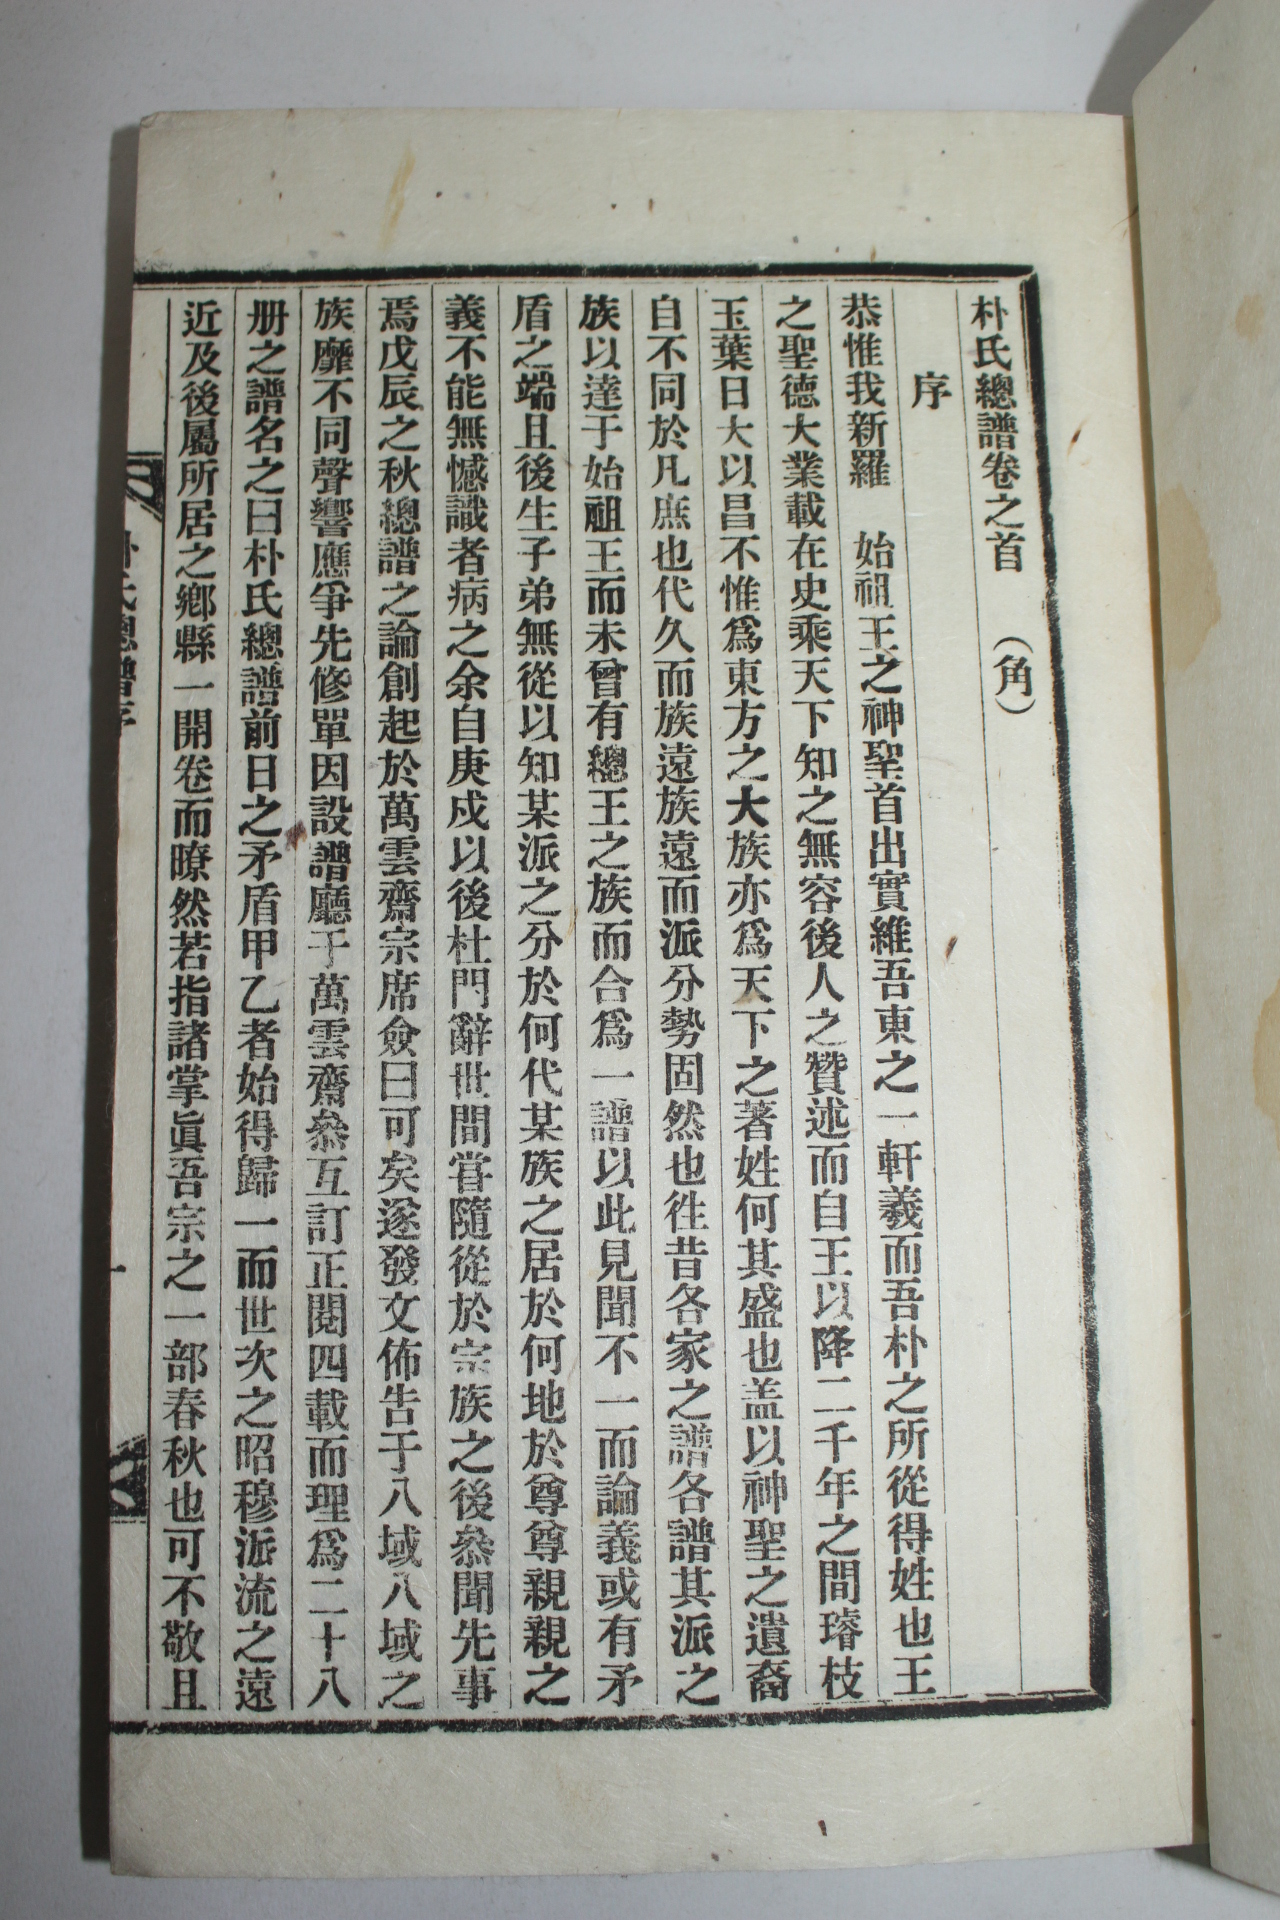 朴氏總譜卷之首　（角）
序
恭惟我新羅　始祖王之神聖首出實維吾東之一軒羲而吾朴之所從得姓也王
之聖德大業載在史乘天下知之無容後人之贊述而自王以降二千年之間璿枝
玉葉日大以昌不惟爲東方之大族亦爲天下之著姓何其盛也盖以神聖之遺裔
自不同於凡庶也代久而族遠族遠而派分勢固然也徃昔各家之譜各譜其派之
族以達于始祖王而未曾有總王之族而合爲一譜以此見聞不一而論義或有矛
盾之端且後生子弟無從以知某派之分於何代某族之居於何地於尊尊親親之
義不能無憾識者病之余自庚戍以後杜門辭世間甞隨從於宗族之後叅聞先事
焉戊辰之秋總譜之論創起於萬雲齋宗席僉曰可矣遂發文佈告于八域八域之
族靡不同聲響應爭先修單因設譜廳于萬雲齋叅互訂正閱四載而理爲二十八
册之譜名之曰朴氏總譜前日之矛盾甲乙者始得歸一而世次之昭穆派流之遠
近及後屬所居之鄕縣一開卷而瞭然若指諸掌眞吾宗之一部春秋也可不敬且
朴氏總譜序
一